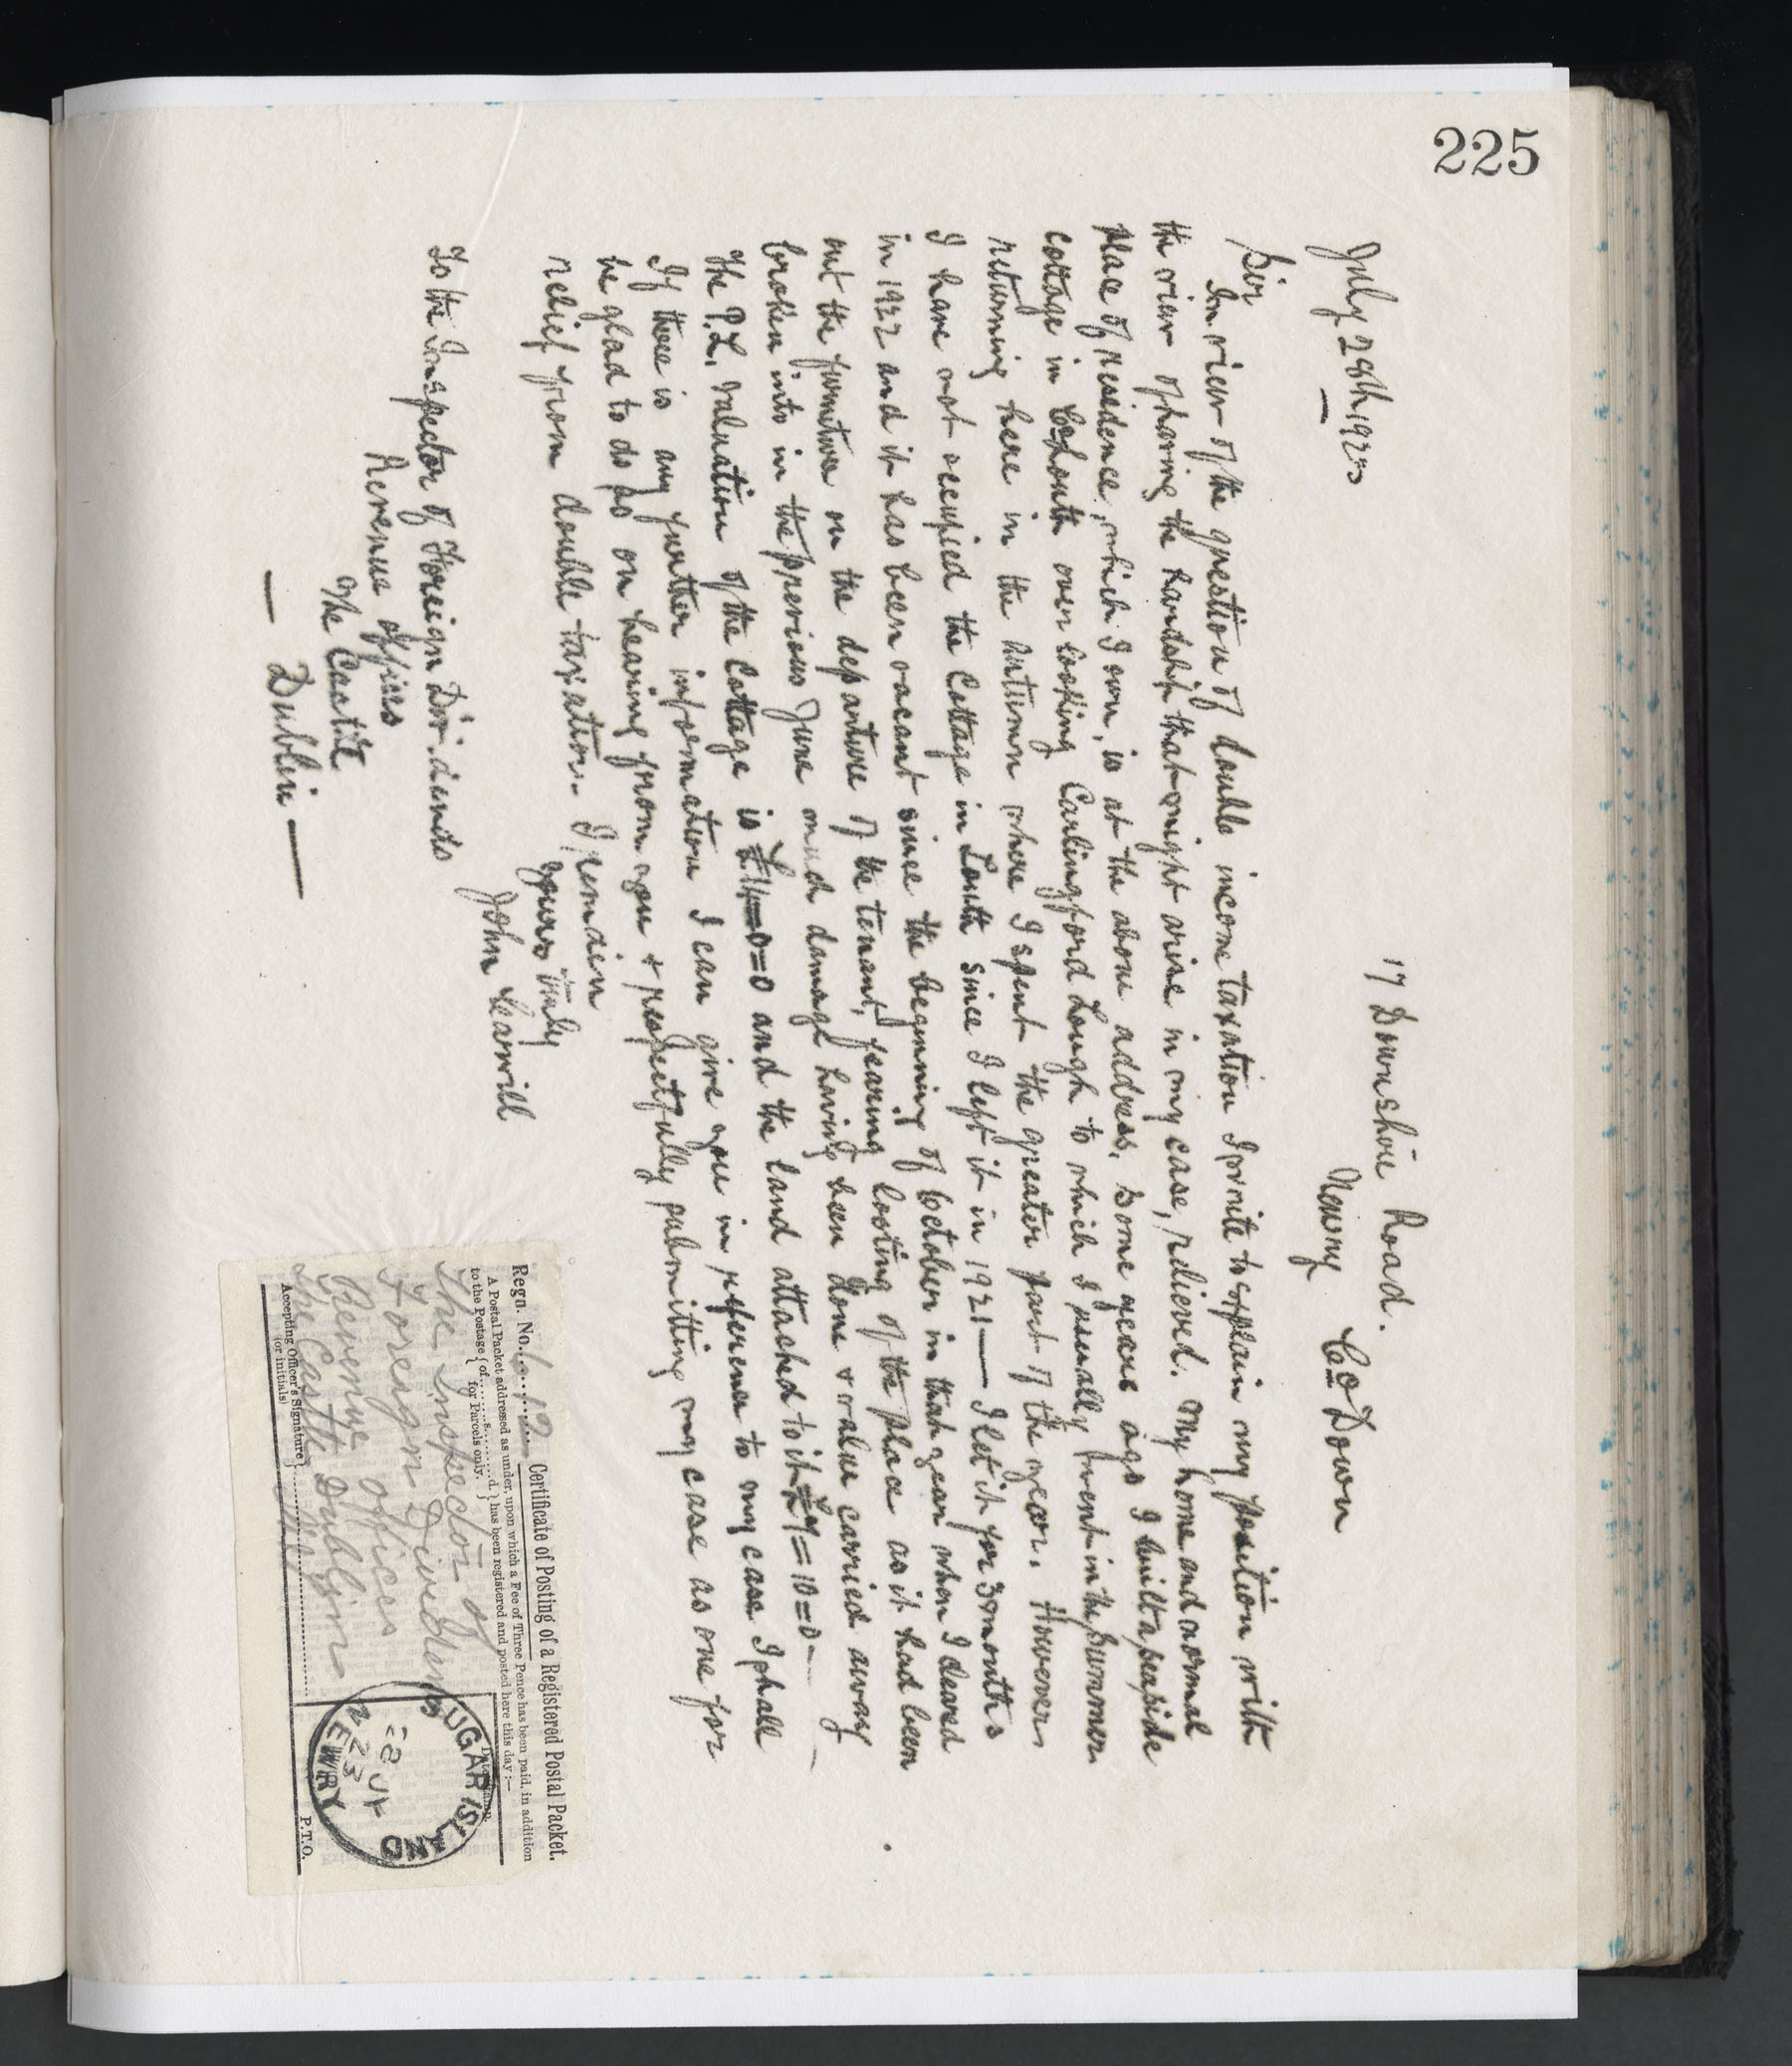 225
17 Downshire Road.
Newry Co Down
July 28th 1923
Sir
In view of the question of double income taxation I write to explain my position with
the view of having the hardship that might arise in my case, relieved. My home and normal
place of residence, which I own, is at the above address. Some years ago I built a seaside
cottage in Co Louth overlooking Carlingford Lough to which I usually went in the summer
returning here in the autumn where I spent the greater part of the year. However
I have not occupied the Cottage in Louth since I left it in 1921 — I let it for 3 months
in 1922 and it has been vacant since the beginning of October in that year when I cleared
out the furniture on the departure of the tenant, fearing looting of the place as it had been
broken into in the previous June and damage having been done & value carried away —
The P.L. valuation of the Cottage is £14=0=0 and the land attached to it £7=10=0 —
If there is any further information I can give you in reference to my case I shall
be glad to do so on hearing from you & respectfully submitting my case as one for
relief from double taxation. I remain
Yours truly
John
To the Inspector of Foreign Dividends
Revenue offices
The Castle
Dublin —
Certificate of Posting of a Registered Postal Packet.
Regn. No.
A Postal Packet addressed as under, upon which a Fee of Three Pence has been paid, in addition
to the Postage { of ........s. ........d. } has been registered and posted here this day:—
for Parcels only.
Date Stamp
The Inspector of
Foreign Dividends
Revenue offices
The Castle Dublin
Accepting Officer's Signature }
(or initials)
P.T.O.
SUGAR ISLAND
NEWRY